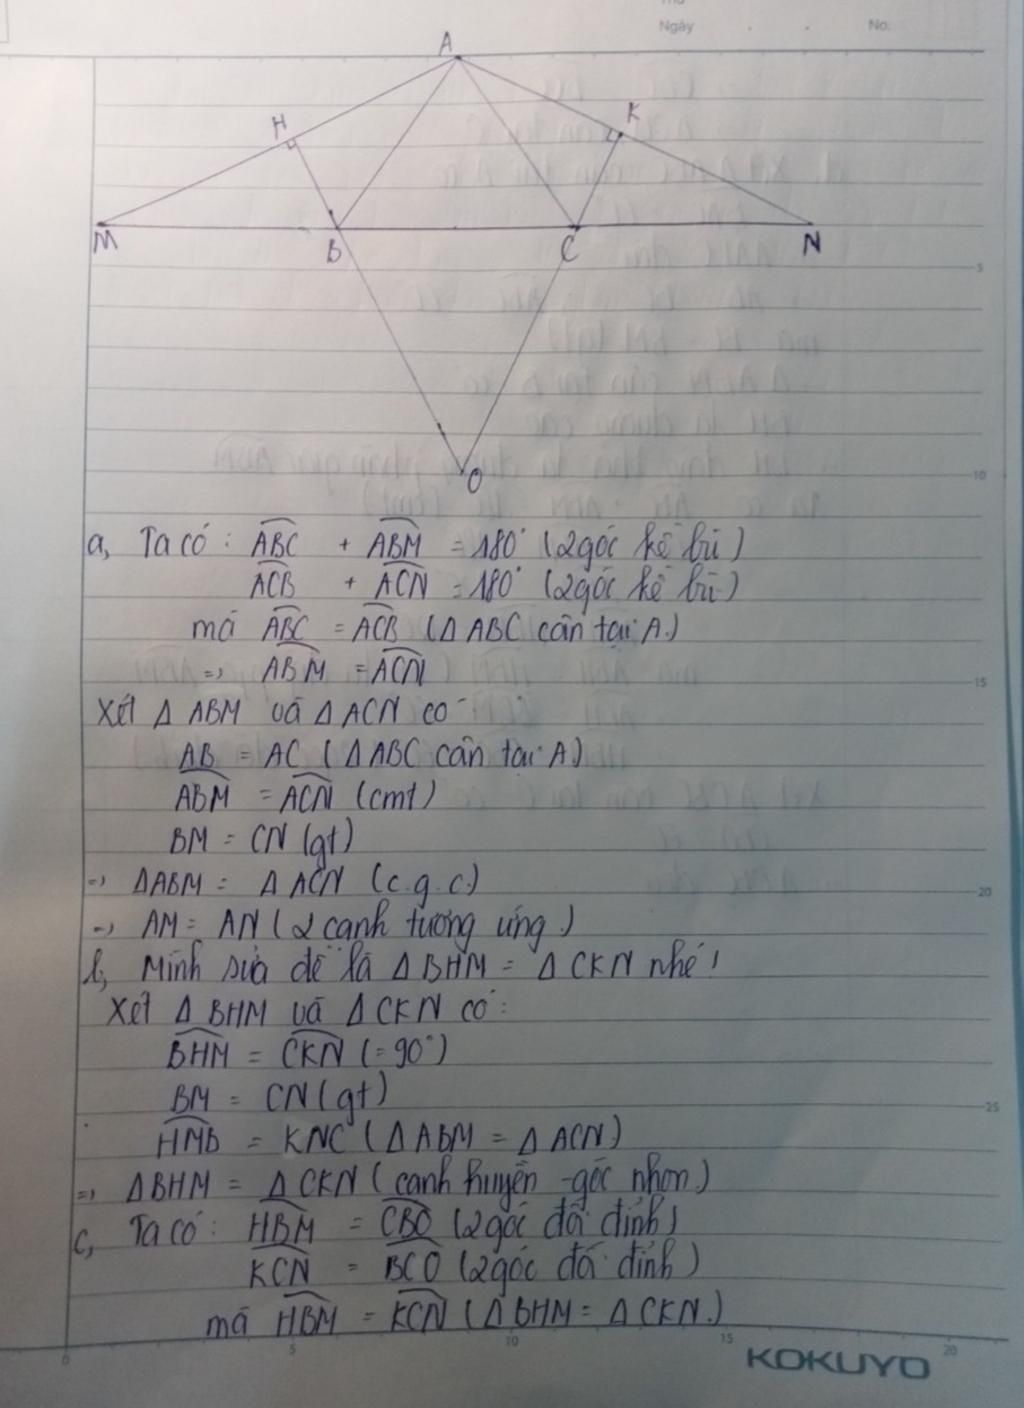 Ngày . . No.
A
H
K
M
B
C
N
O
5
10
a, Ta có : ABC + ABM = 180° (2 góc kề bù)
ACB + ACN = 180° (2 góc kề bù)
mà ABC = ACB (Δ ABC cân tại A)
=> ABM = ACN
15
Xét Δ ABM và Δ ACN có
AB = AC (Δ ABC cân tại A)
ABM = ACN (cmt)
BM = CN (gt)
=> ΔABM = Δ ACN (c.g.c)
20
=> AM = AN (2 cạnh tương ứng)
b, Mình sửa đề là Δ BHM = Δ CKN nhé!
Xét Δ BHM và Δ CKN có:
BHM = CKN (= 90°)
BM = CN (gt)
25
HMB = KNC (Δ ABM = Δ ACN)
=> ΔBHM = Δ CKN (cạnh huyền - góc nhọn)
c, Ta có: HBM = CBO (2 góc đối đỉnh)
KCN = BCO (2 góc đối đỉnh)
mà HBM = KCN (Δ BHM = Δ CKN.)
0 5 10 15 20
KOKUYO